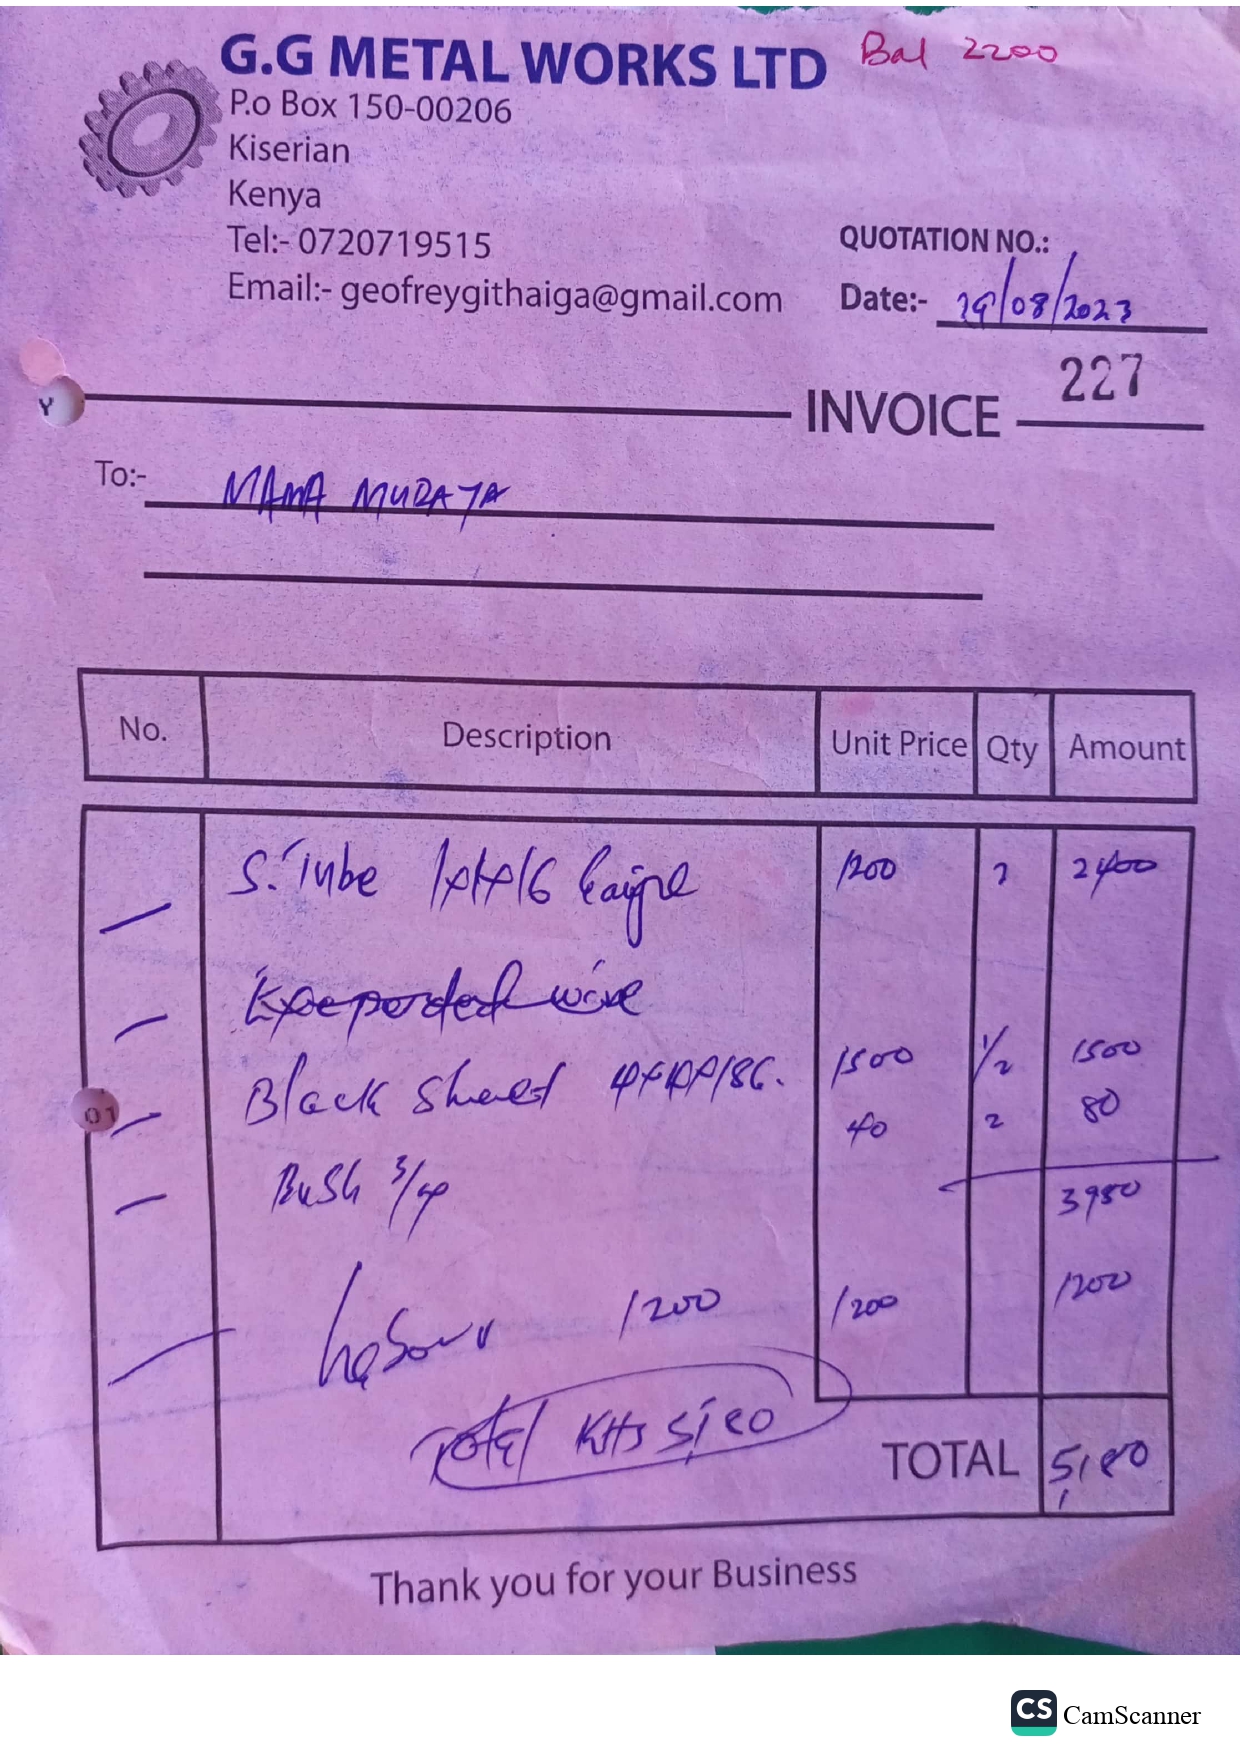 G.G METAL WORKS LTD
Bal 2200
P.o Box 150-00206
Kiserian
Kenya
Tel:- 0720719515
Email:- geofreygithaiga@gmail.com
QUOTATION NO.:
Date:- 29/08/2023
INVOICE 227
Y
To:- MAMA MURAYA
No. Description Unit Price Qty Amount
S.Tube 1x1x16 Gaige 1200 2 2400
wire
Black Sheet 4x8x18G. 1500 1/2 1500
01
Bush 3/4 40 2 80
3980
Labour 1200 1200 1200
Total KHs 5,180
TOTAL 5,180
Thank you for your Business
CS CamScanner